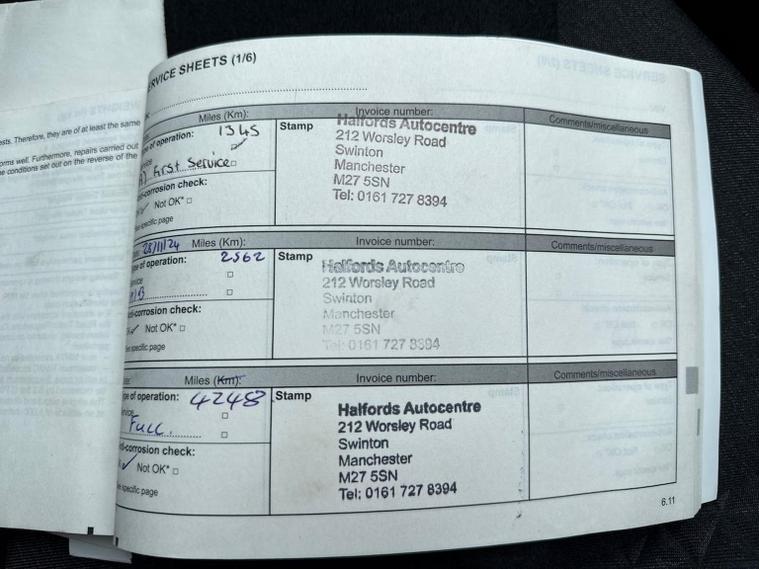 ests. Therefore, they are of at least the same
orms well. Furthermore, repairs carried out
e conditions set out on the reverse of the
ERVICE SHEETS (1/6)
Miles (Km): Invoice number: Comments/miscellaneous
pe of operation: 1345 Stamp
First Service
Halfords Autocentre
212 Worsley Road
Swinton
Manchester
M27 5SN
Tel: 0161 727 8394
i-corrosion check:
Not OK*
specific page
28/11/24 Miles (Km): Invoice number: Comments/miscellaneous
e of operation: 2562 Stamp
Halfords Autocentre
212 Worsley Road
Swinton
Manchester
M27 5SN
Tel: 0161 727 8394
i-corrosion check:
Not OK*
specific page
Miles (Km): Invoice number: Comments/miscellaneous
pe of operation: 4248 Stamp
Full.
Halfords Autocentre
212 Worsley Road
Swinton
Manchester
M27 5SN
Tel: 0161 727 8394
i-corrosion check:
Not OK*
specific page
6.11